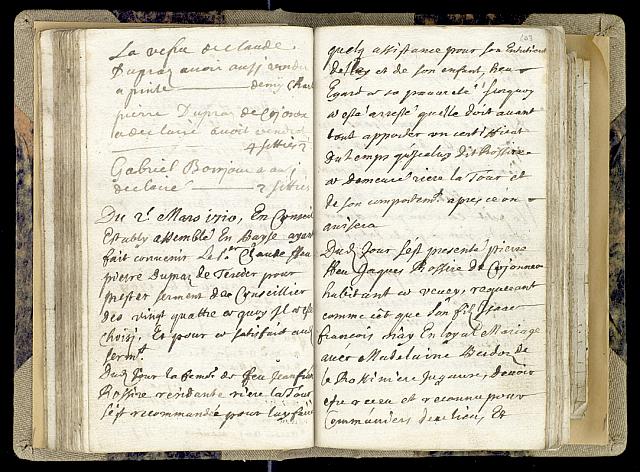 La vefue de Claude
Dupraz avoir aussi vendu
a pinte demij Char
pierre Dupraz de
a declairé avoit vendu
4 settiers
Gabriel a aussi
declairé 2 settiers
Du 2e Mars 1710, En Conseil
Estably assemblé En
fait convenir Le Sr Claude feu
pierre Dupraz de pour
prester serment de Conseillier
des vingt quattre a quoy Il a esté
choisi, Et pour a satisfait au
sermt
Dud Jour la femme de feu Jean
Rossire residante riere la Tour
s'est recommandée pour luy fair
103
quelq assistance pour son Entretient
delle et de son enfant, heu
Egard a sa pauureté Surquoy
a esté arresté quelle doit avant
tout apporter un certifficat
du temps que led Rossire
a demeuré riere la Tour et
de son comportemt apres ce on
auisera
Dud Jour s'est presenté pierre
feu Jaques Rossire de
habitant a vevey, requerant
comme cest que son fils Isaac
francois En loyal Mariage
avec Madelaine
la Rossiniere devoir
estre receu et reconnu pour
Communiers de ce lieu, Et